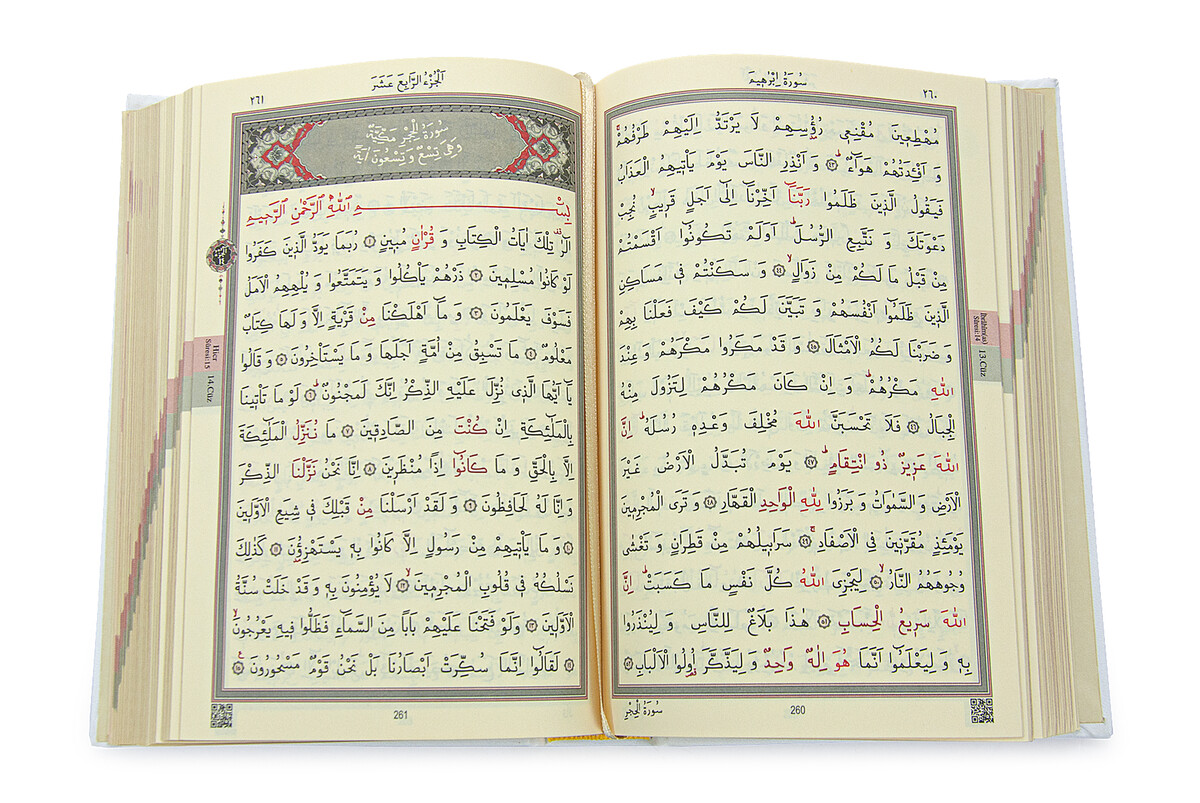 سُورَةُ اِبْرٰهٖيمَ
٢٦٠
مُهْطِعٖينَ مُقْنِعٖى رُؤُ۫سِهِمْ لَا يَرْتَدُّ اِلَيْهِمْ طَرْفُهُمْۚ
وَ اَفْـِٔدَتُهُمْ هَوَٓاءٌؕ ﴿٤٣﴾ وَ اَنْذِرِ النَّاسَ يَوْمَ يَاْتٖيهِمُ الْعَذَابُ
فَيَقُولُ الَّذٖينَ ظَلَمُوا رَبَّنَٓا اَخِّرْنَٓا اِلٰٓى اَجَلٍ قَرٖيبٍۙ نُجِبْ
دَعْوَتَكَ وَ نَتَّبِعِ الرُّسُلَؕ اَوَلَمْ تَكُونُٓوا اَقْسَمْتُمْ
مِنْ قَبْلُ مَا لَكُمْ مِنْ زَوَالٍۙ ﴿٤٤﴾ وَ سَكَنْتُمْ فٖى مَسَاكِنِ
الَّذٖينَ ظَلَمُٓوا اَنْفُسَهُمْ وَ تَبَيَّنَ لَكُمْ كَيْفَ فَعَلْنَا بِهِمْ
وَ ضَرَبْنَا لَكُمُ الْاَمْثَالَ ﴿٤٥﴾ وَ قَدْ مَكَرُوا مَكْرَهُمْ وَ عِنْدَ
اللّٰهِ مَكْرُهُمْؕ وَ اِنْ كَانَ مَكْرُهُمْ لِتَزُولَ مِنْهُ
الْجِبَالُ ﴿٤٦﴾ فَلَا تَحْسَبَنَّ اللّٰهَ مُخْلِفَ وَعْدِهٖ رُسُلَهُؕ اِنَّ
اللّٰهَ عَزٖيزٌ ذُو انْتِقَامٍؕ ﴿٤٧﴾ يَوْمَ تُبَدَّلُ الْاَرْضُ غَيْرَ
الْاَرْضِ وَ السَّمٰوَاتُ وَ بَرَزُوا لِلّٰهِ الْوَاحِدِ الْقَهَّارِ ﴿٤٨﴾ وَ تَرَى الْمُجْرِمٖينَ
يَوْمَئِذٍ مُقَرَّنٖينَ فِى الْاَصْفَادِۚ ﴿٤٩﴾ سَرَابٖيلُهُمْ مِنْ قَطِرَانٍ وَ تَغْشٰى
وُجُوهَهُمُ النَّارُۙ ﴿٥٠﴾ لِيَجْزِىَ اللّٰهُ كُلَّ نَفْسٍ مَا كَسَبَتْؕ اِنَّ
اللّٰهَ سَرٖيعُ الْحِسَابِ ﴿٥١﴾ هٰذَا بَلَاغٌ لِلنَّاسِ وَ لِيُنْذَرُوا
بِهٖ وَ لِيَعْلَمُٓوا اَنَّمَا هُوَ اِلٰهٌ وَاحِدٌ وَ لِيَذَّكَّرَ اُو۬لُوا الْاَلْبَابِ ﴿٥٢﴾
260
سُورَةُ الْحِجْرِ
İbrâhîm(as)
Sûresi:14
13.Cüz
اَلْجُزْءُ الرَّابِعَ عَشَرَ
٢٦١
سُورَةُ الْحِجْرِ مَكِّيَّةٌ
وَهِىَ تِسْعٌ وَ تِسْعُونَ اٰيَةً
بِسْمِ اللّٰهِ الرَّحْمٰنِ الرَّحٖيمِ
الٓرٰ۠ تِلْكَ اٰيَاتُ الْكِتَابِ وَ قُرْاٰنٍ مُبٖينٍ ﴿١﴾ رُبَمَا يَوَدُّ الَّذٖينَ كَفَرُوا
لَوْ كَانُوا مُسْلِمٖينَ ﴿٢﴾ ذَرْهُمْ يَاْكُلُوا وَ يَتَمَتَّعُوا وَ يُلْهِهِمُ الْاَمَلُ
فَسَوْفَ يَعْلَمُونَ ﴿٣﴾ وَ مَٓا اَهْلَكْنَا مِنْ قَرْيَةٍ اِلَّا وَ لَهَا كِتَابٌ
مَعْلُومٌ ﴿٤﴾ مَا تَسْبِقُ مِنْ اُمَّةٍ اَجَلَهَا وَ مَا يَسْتَاْخِرُونَ ﴿٥﴾ وَ قَالُوا
يَٓا اَيُّهَا الَّذٖى نُزِّلَ عَلَيْهِ الذِّكْرُ اِنَّكَ لَمَجْنُونٌؕ ﴿٦﴾ لَوْ مَا تَاْتٖينَا
بِالْمَلٰٓئِكَةِ اِنْ كُنْتَ مِنَ الصَّادِقٖينَ ﴿٧﴾ مَا نُنَزِّلُ الْمَلٰٓئِكَةَ
اِلَّا بِالْحَقِّ وَ مَا كَانُٓوا اِذًا مُنْظَرٖينَ ﴿٨﴾ اِنَّا نَحْنُ نَزَّلْنَا الذِّكْرَ
وَ اِنَّا لَهُ لَحَافِظُونَ ﴿٩﴾ وَ لَقَدْ اَرْسَلْنَا مِنْ قَبْلِكَ فٖى شِيَعِ الْاَوَّلٖينَ
﴿١٠﴾ وَ مَا يَاْتٖيهِمْ مِنْ رَسُولٍ اِلَّا كَانُوا بِهٖ يَسْتَهْزِؤُ۫نَ ﴿١١﴾ كَذٰلِكَ
نَسْلُكُهُ فٖى قُلُوبِ الْمُجْرِمٖينَۙ ﴿١٢﴾ لَا يُؤْمِنُونَ بِهٖ وَ قَدْ خَلَتْ سُنَّةُ
الْاَوَّلٖينَ ﴿١٣﴾ وَلَوْ فَتَحْنَا عَلَيْهِمْ بَابًا مِنَ السَّمَٓاءِ فَظَلُّوا فٖيهِ يَعْرُجُونَۙ
﴿١٤﴾ لَقَالُٓوا اِنَّمَا سُكِّرَتْ اَبْصَارُنَا بَلْ نَحْنُ قَوْمٌ مَسْحُورُونَ۟ ﴿١٥﴾
261
Hicr
Sûresi:15
14.Cüz